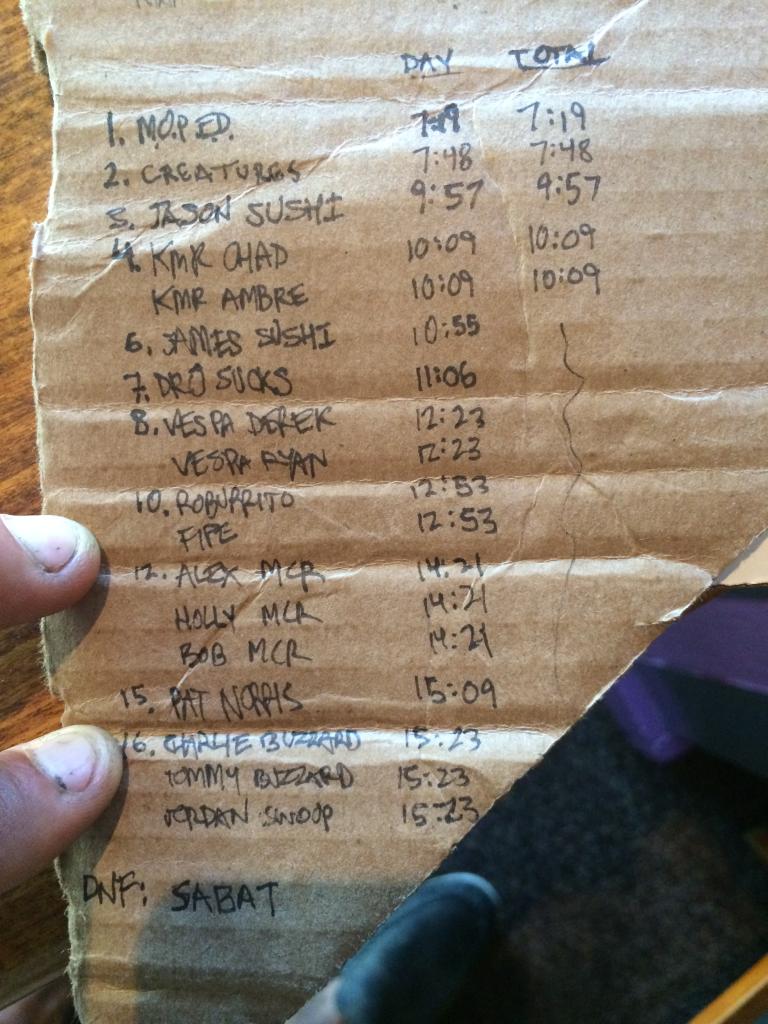 DAY TOTAL
1. M.O.P.ED. 7:19 7:19
2. CREATURES 7:48 7:48
3. JASON SUSHI 9:57 9:57
4. KMR CHAD 10:09 10:09
KMR AMBRE 10:09 10:09
6. JAMES SUSHI 10:55
7. DRO SUCKS 11:06
8. VESPA DEREK 12:23
VESPA RYAN 12:23
10. ROBURRITO 12:53
FIPE 12:53
12. ALEX MCR 14:21
HOLLY MCR 14:21
BOB MCR 14:21
15. PAT NORRIS 15:09
16. CHARLIE BUZZARD 15:23
TOMMY BUZZARD 15:23
JORDAN SWOOP 15:23
DNF: SABAT